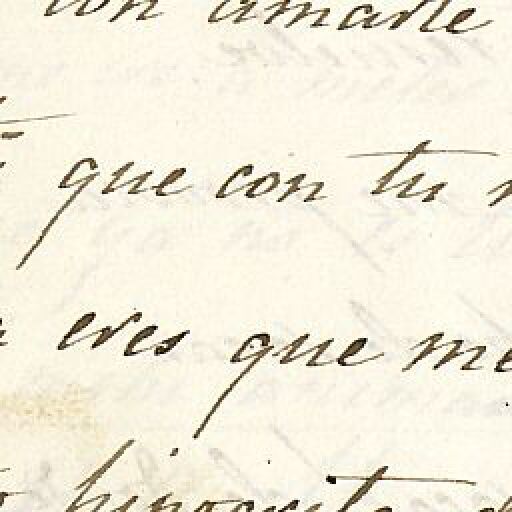 con amarte
que con tu
eres que me
hipocrita